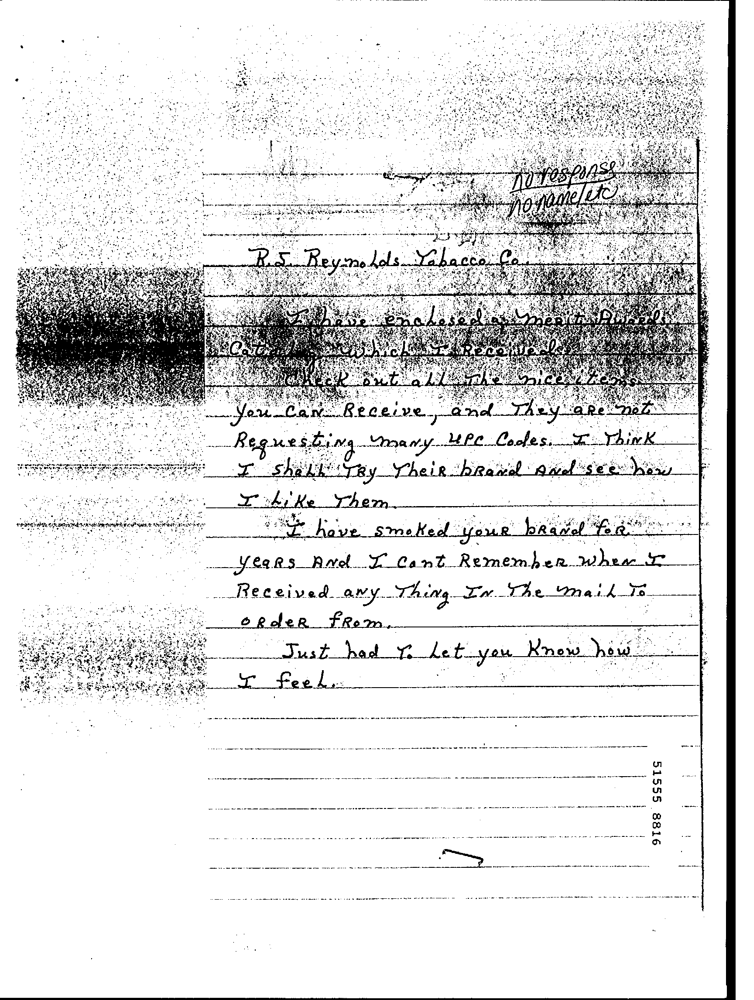 no response
no name/etc
R.J. Reynolds Tobacco Co.
I have enclosed a Merit Awards
Catalog which I Received.
Check out all The nice items
you can Receive, and They are not
Requesting many UPC Codes. I Think
I shall Try Their brand and see how
I Like Them.
I have smoked your brand for
years and I cant Remember when I
Received any Thing In The mail To
order from.
Just had To Let you Know how
I feel.
51555 8816